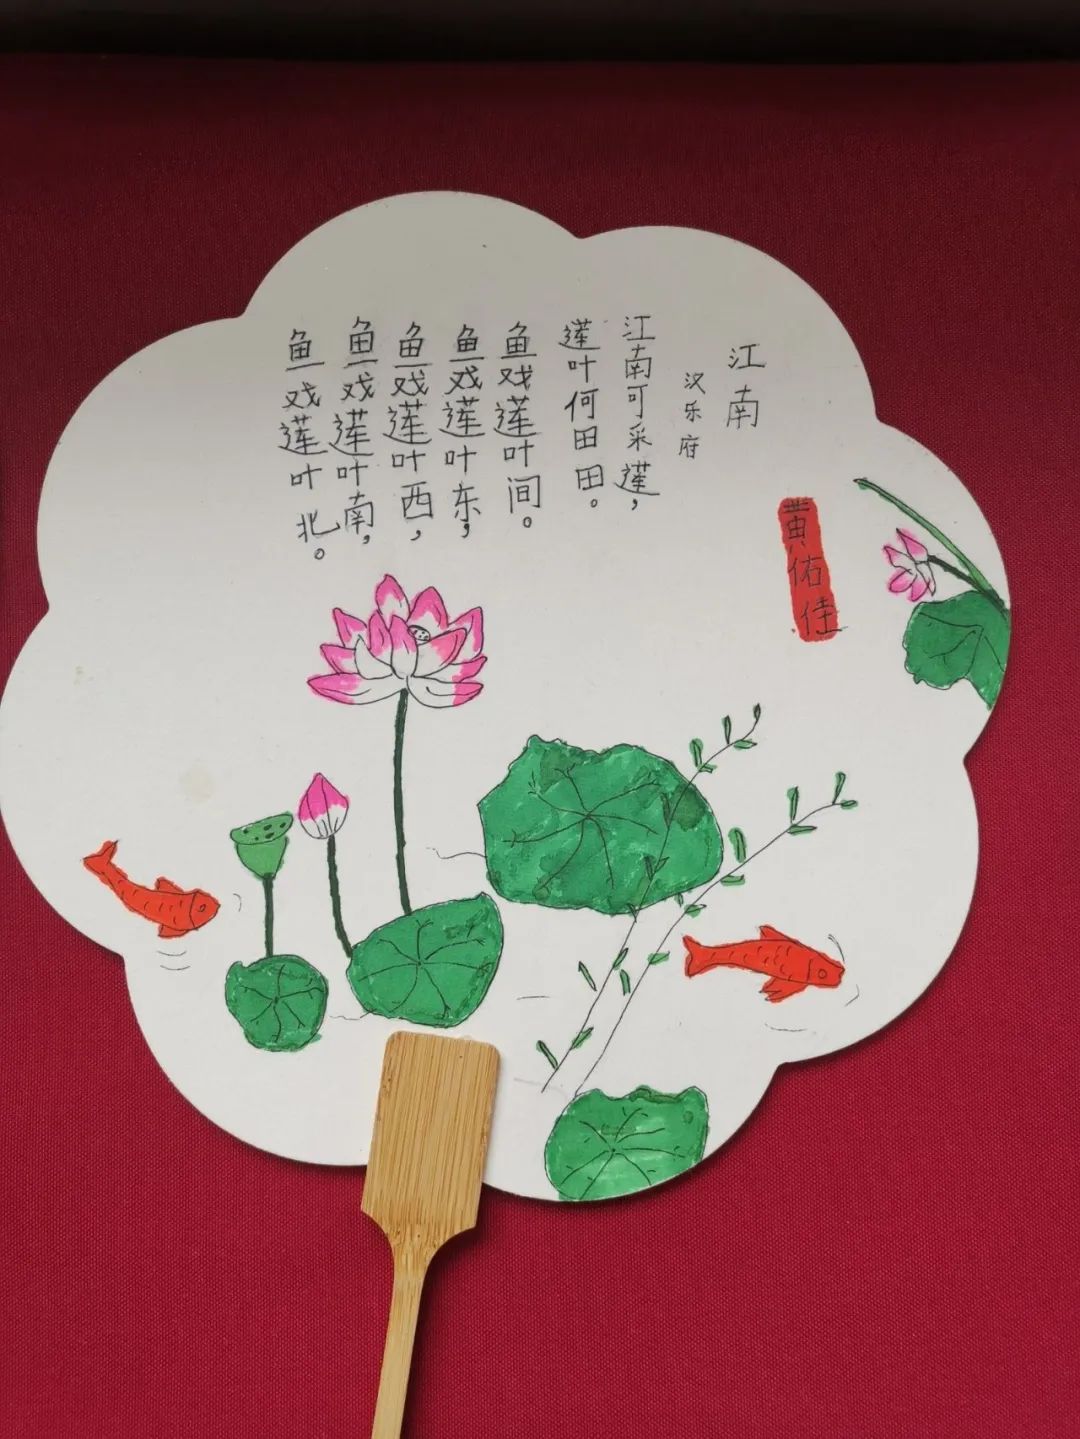 江南
汉乐府
江南可采莲，
莲叶何田田。
鱼戏莲叶间。
鱼戏莲叶东，
鱼戏莲叶西，
鱼戏莲叶南，
鱼戏莲叶北。
黄佑佳